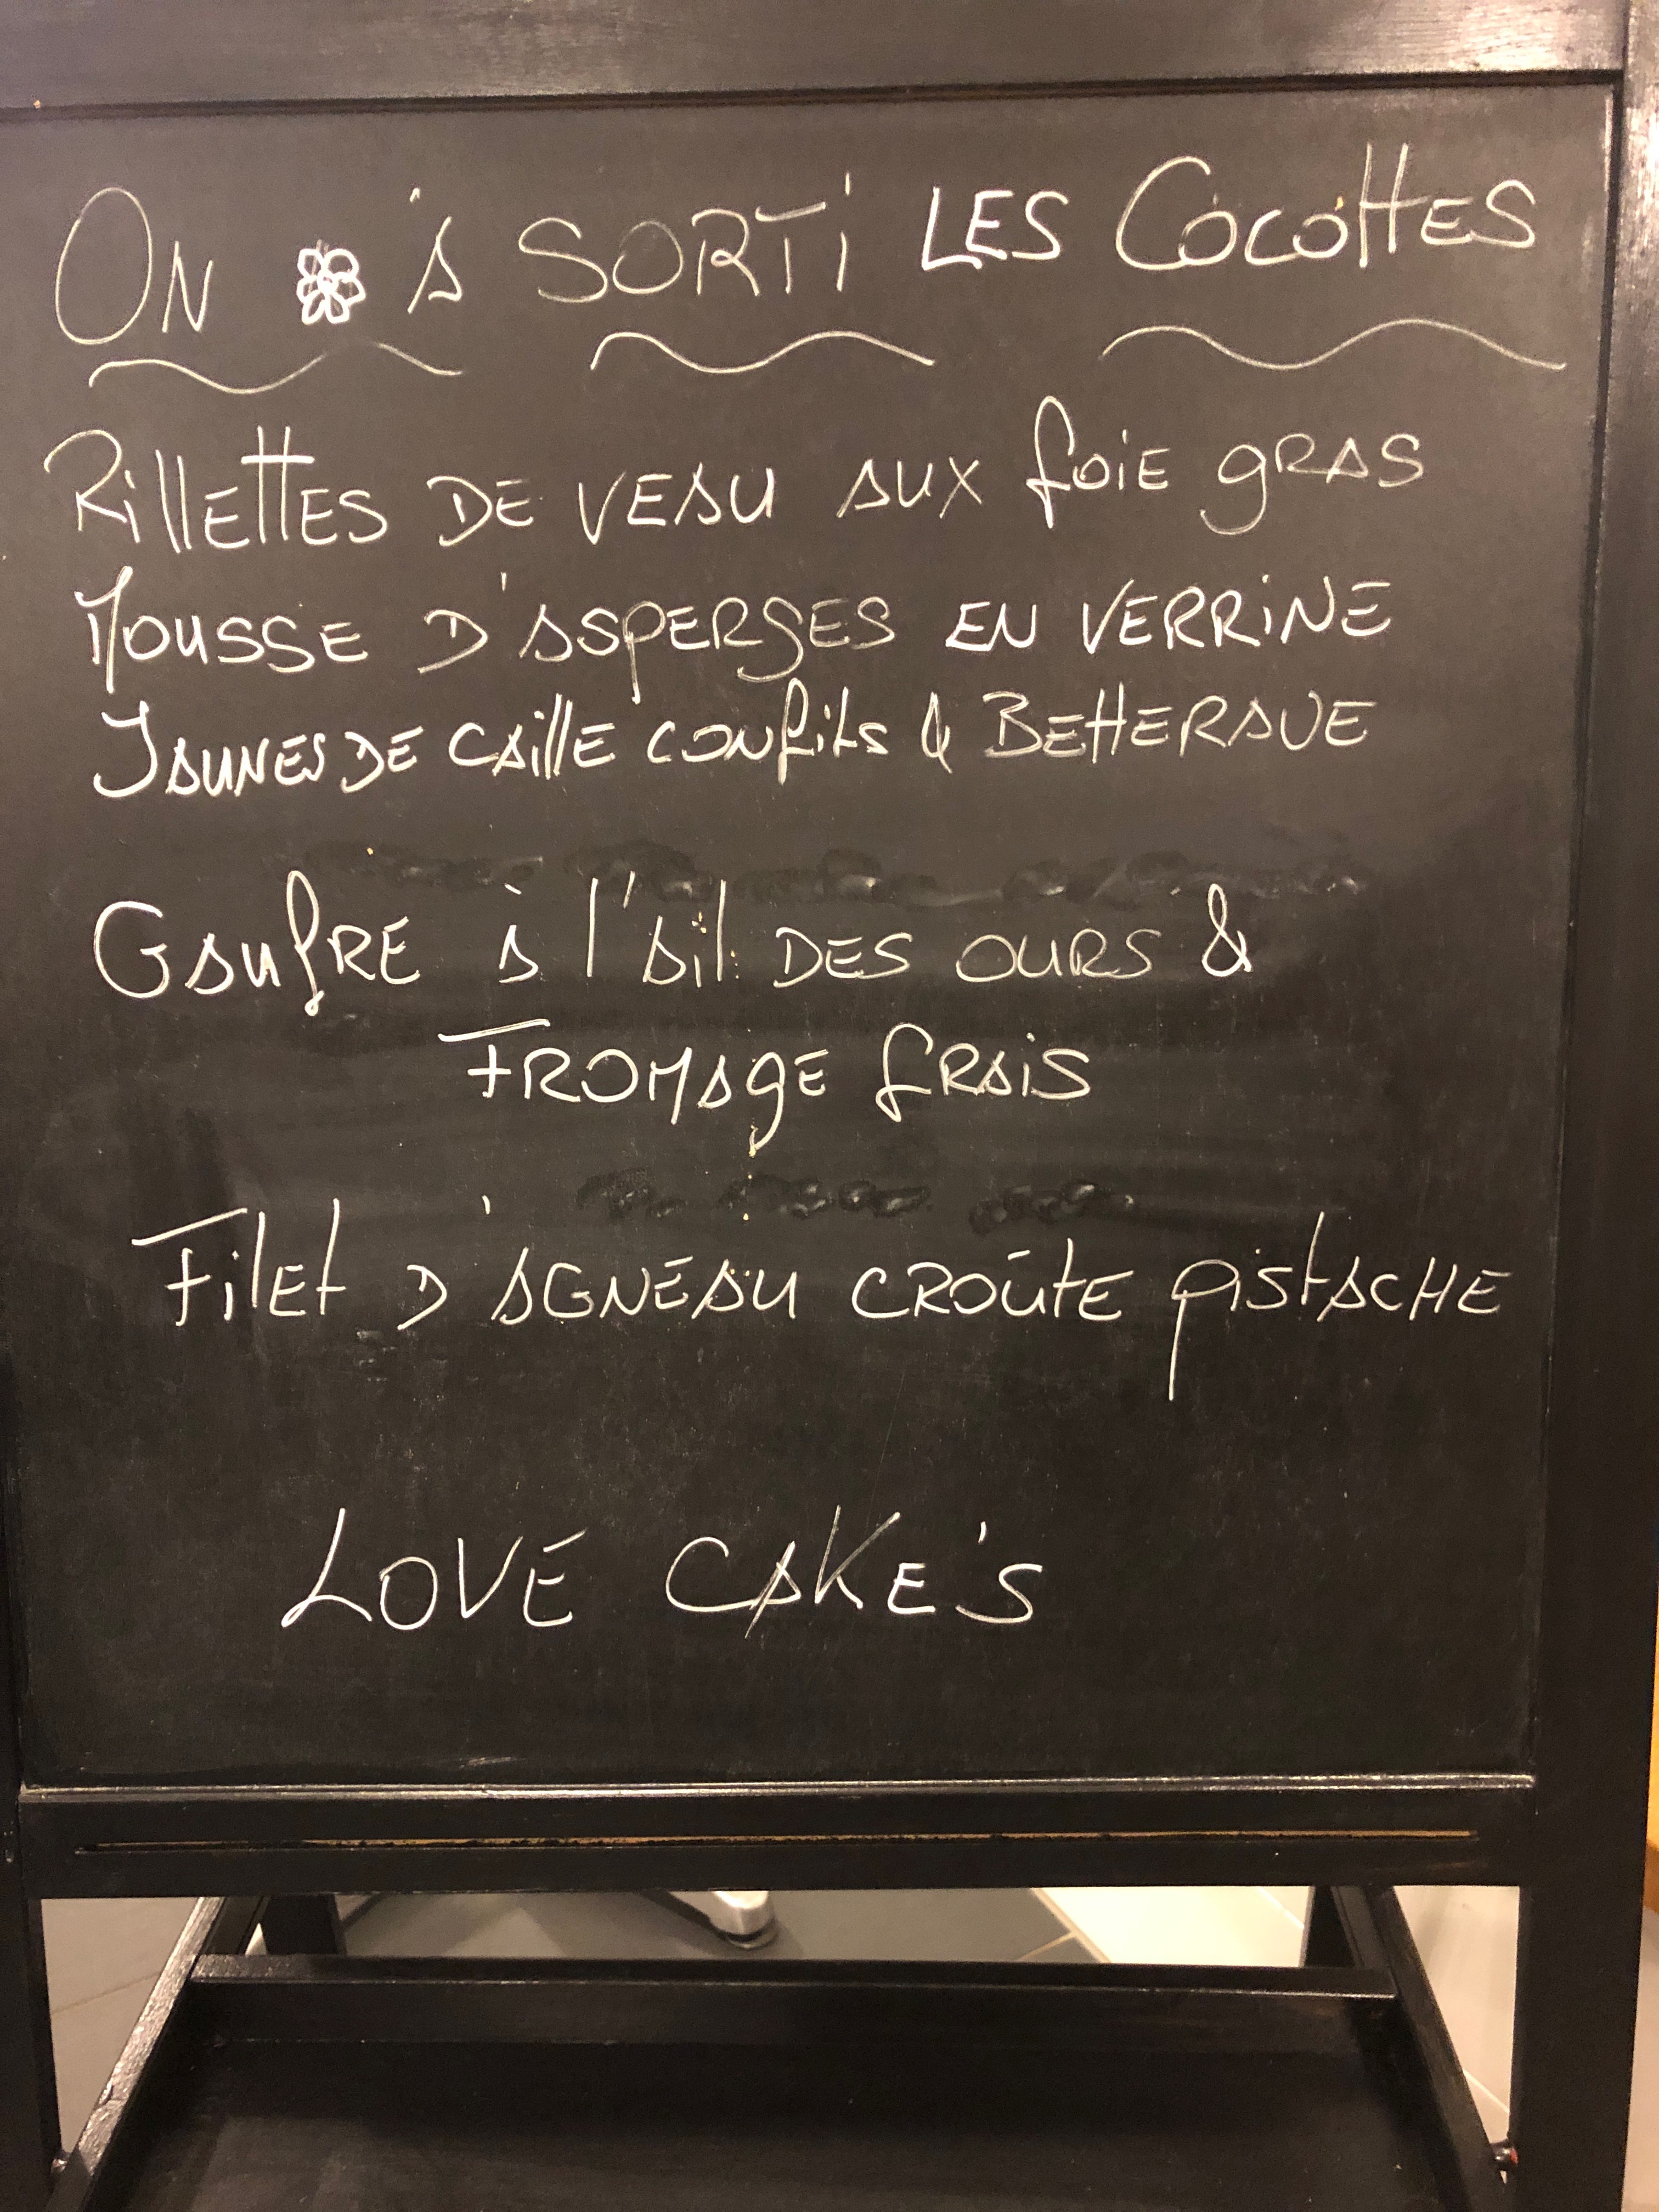 ON à SORTi LES COCOTTES
RillETTES DE VEAU AUX foiE gRAS
MOUSSE D'ASPERGES EN VERRiNE
JAUNES DE CAillE CONfits & BETTERAVE
GAUfRE à l'Ail DES OURS &
FROMAgE fRAiS
FilEt D'AGNEAU CROÛtE pistACHE
LOVE CAKE'S